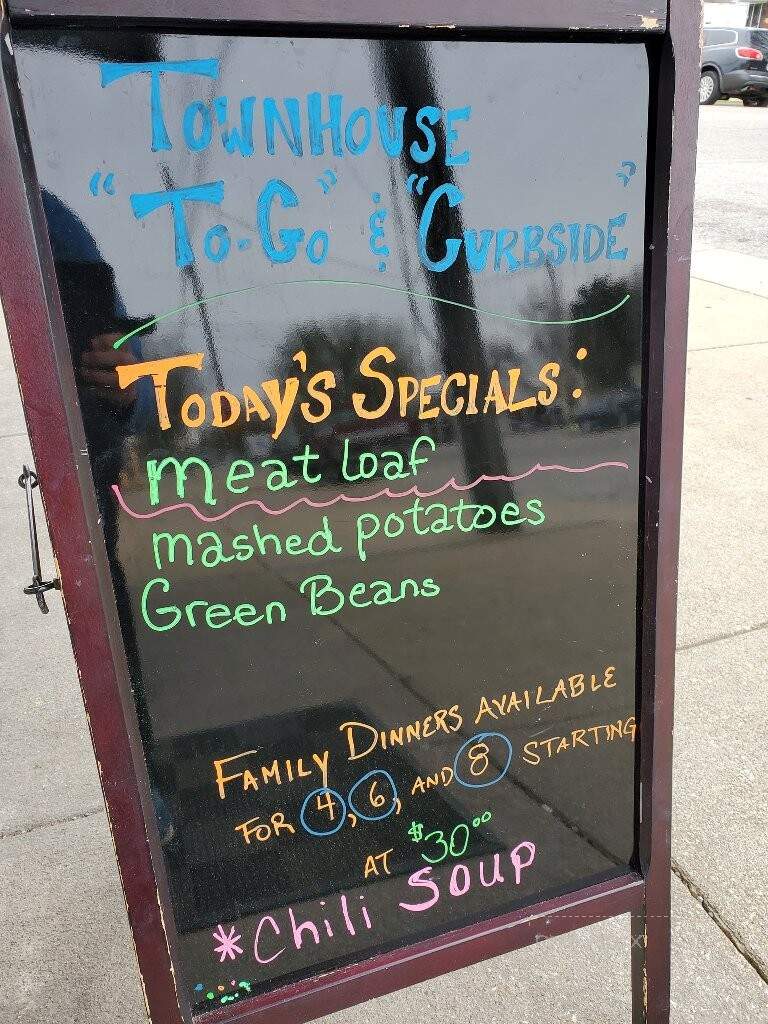 TOWNHOUSE
"TO-GO" & "CURBSIDE"
TODAY'S SPECIALS:
meat loaf
mashed potatoes
Green Beans
FAMILY DINNERS AVAILABLE
FOR 4, 6, AND 8 STARTING
AT $30.00
*Chili SOUP